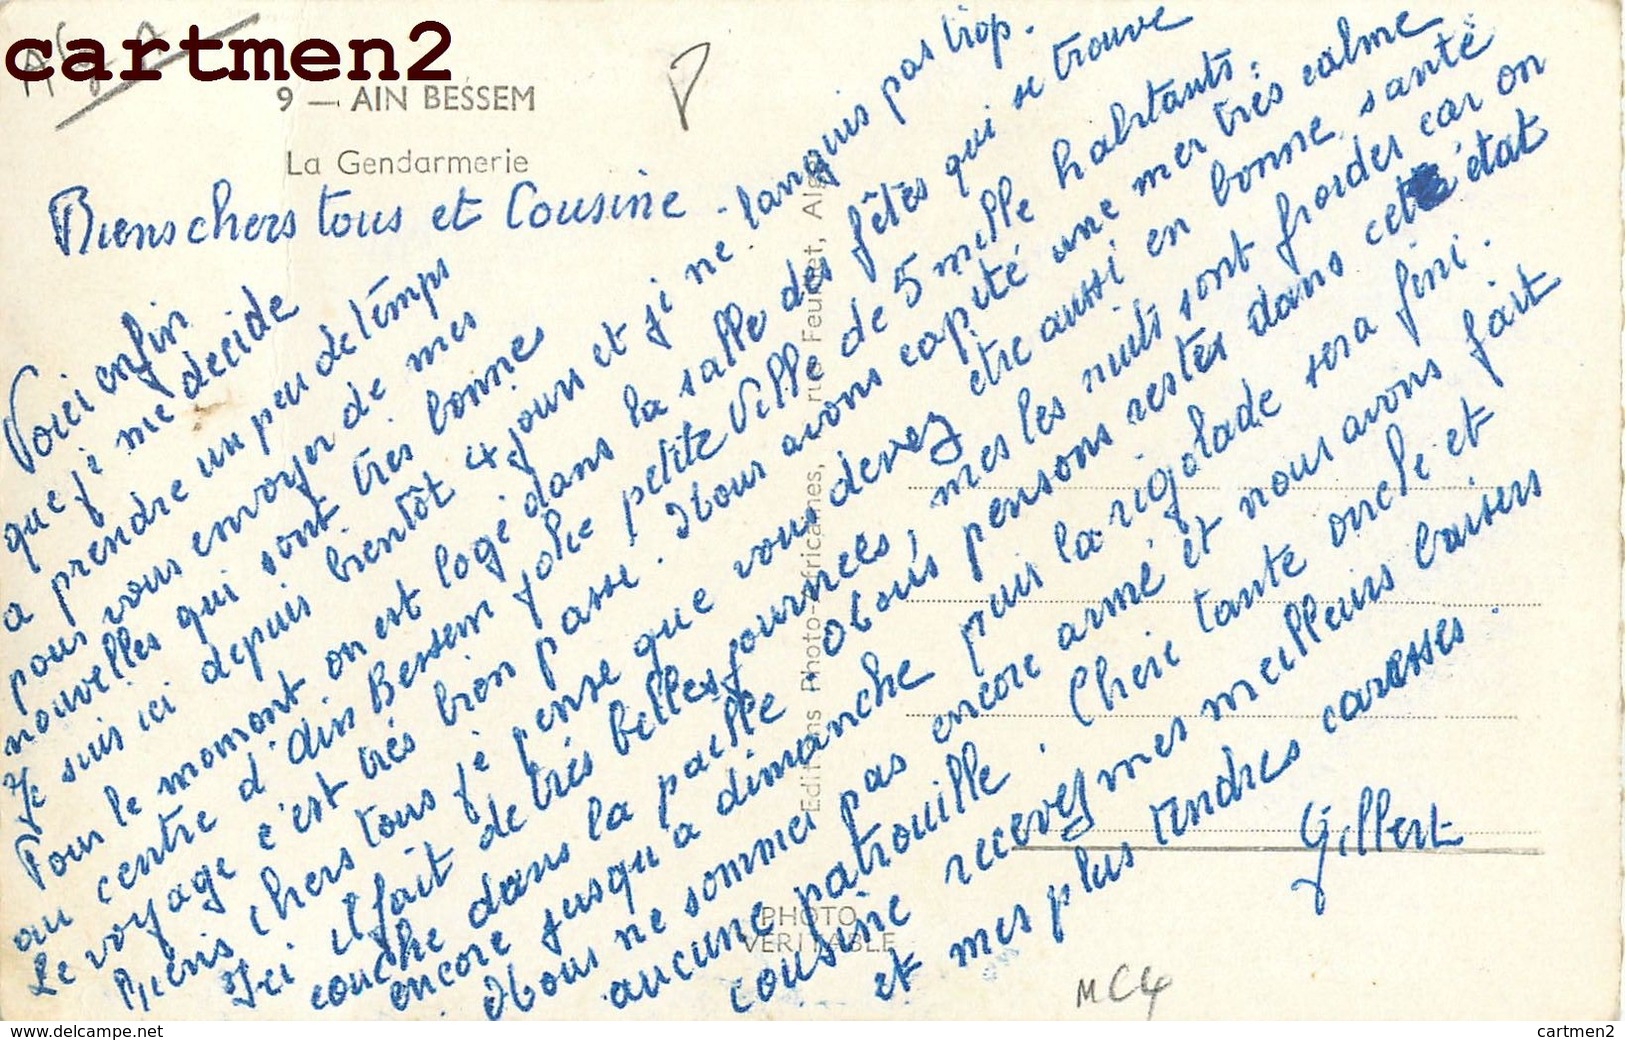 cartmen2
9 — AIN BESSEM
La Gendarmerie
P
Biens chers tous et Cousine.
Voici enfin
que je me decide
a prendre un peu de temps
pour vous envoyer de mes
nouvelles qui sont très bonnes
Je suis ici depuis bientôt 4 jours et je ne languis pas trop.
Pour le moment on est logé dans la salle des fêtes qui se trouve
au centre d'Ain Bessem jolie petite Ville de 5 mille habitants.
Le voyage c'est très bien passé. Nous avons une mer très calme
Biens chers tous je pense que vous devez etre aussi en bonne santé
Ici il fait de très belles journées, mes les nuits sont froides car on
couche dans la paille Nous pensons restés dans cet état
encore jusqu'a dimanche puis la rigolade sera fini.
Nous ne sommes pas encore armé et nous avons fait
aucune patrouille. Chere tante oncle et
cousine recevez mes meilleurs baisers
et mes plus tendres caresses.
Gilbert
Editions Photo-Africaines, rue Feuillet, Alger
PHOTO
VERITABLE
MC4
www.delcampe.net
cartmen2